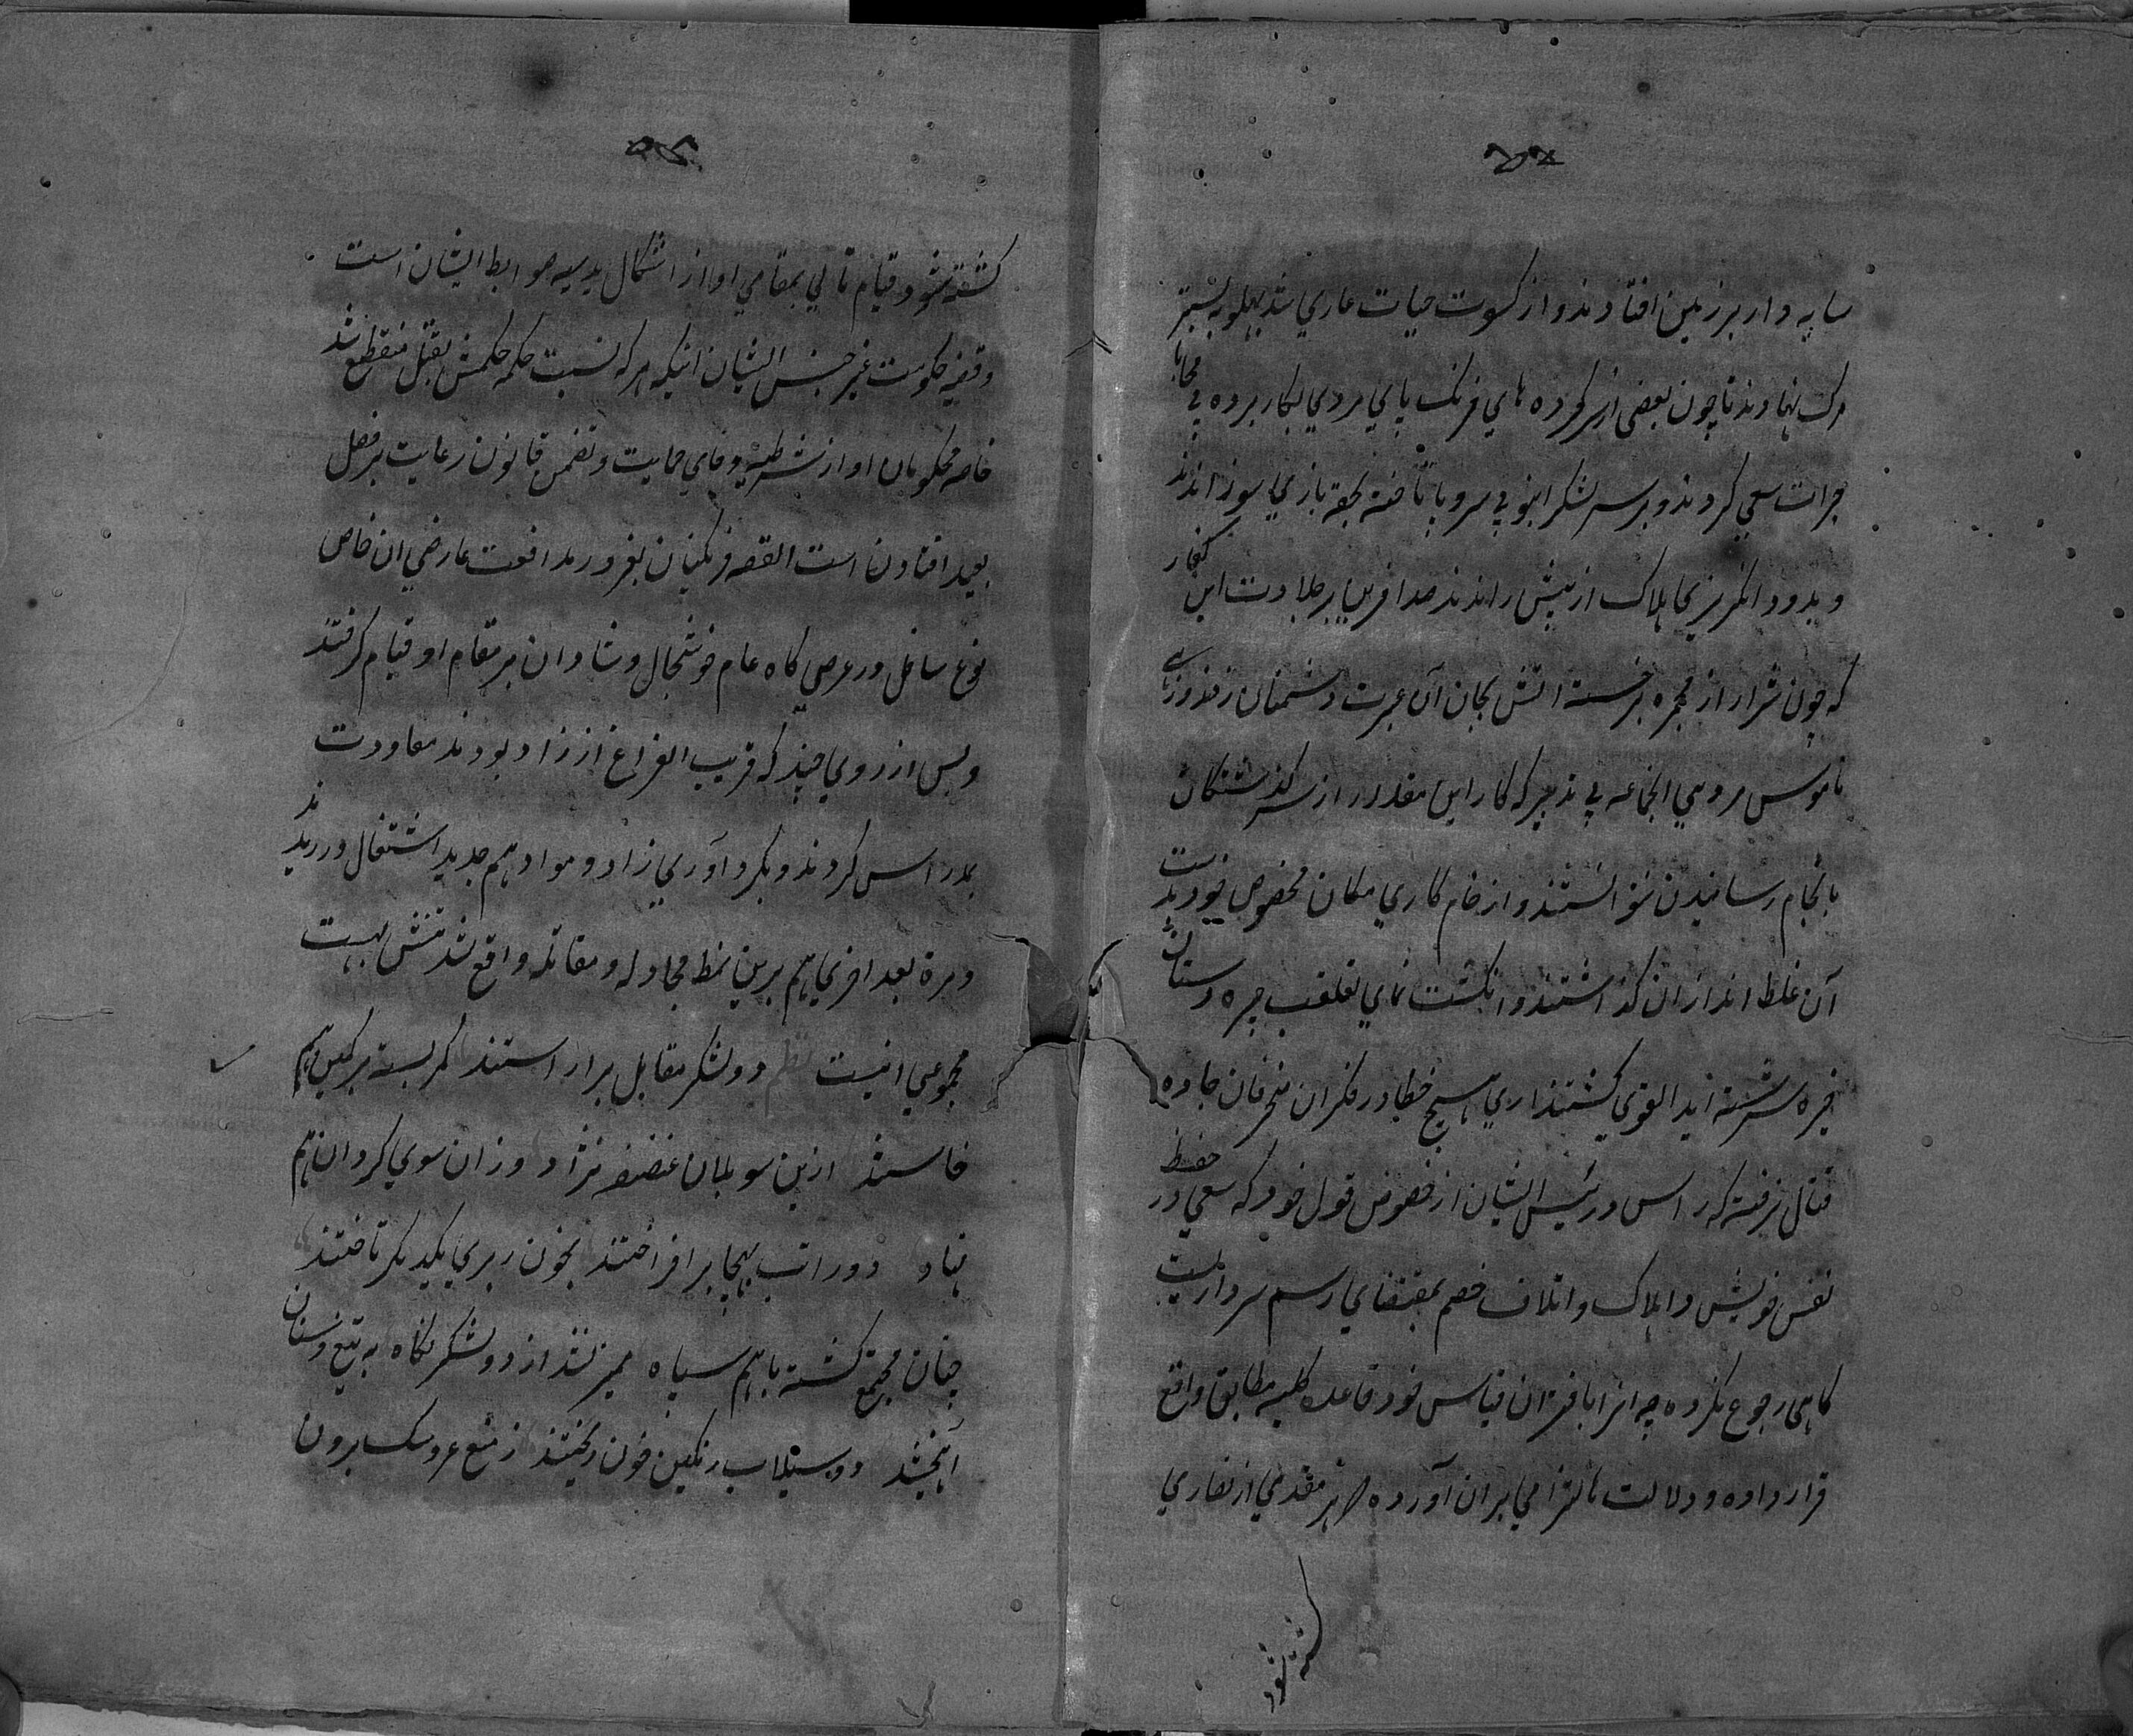 سایه وار بر زمین افتادند و از کسوت حیات عاری شد پهلو به بستر
مرک نهادند تا چون بعضی از سرکرده های فرنک پای مردی بکار برده بی محابا
جرات سعی کردند و بر سر لشکر انبوه بی سر و پا تاخته بحقه بازی سوزاندند
و بدود انکریزی هلاک از پیش راندند صد افرین بر جلادت این کفار
که چون شرار از مجمره برخسته اتش بجان آن عبرت دشمنان زدند و زهی
ناموس مردمی الجماعه بی تدبیر که کار این مقدار از سر کذشتکان
بانجام رسانیدن نتوانستند و از خام کاری مکان مخصوص خود بدست
آن غلط اندازان کذاشتند و انکشت نمای تغلب چیره دستان
خیره سر شسته اید القوی کشتند اری هیچ خطا در فکر ان منحرفان جاده
قتال نرفته که راس و رئیس ایشان از خصوص قول خود که سعی در حفظ
نفس خویش و اهلاک و اتلاف خصم بمقتضای رسم سرداریست
کاهی رجوع نکرده چه انرا باقتران قیاس خود قاعده کلیه مطابق واقع
قرار داده و دلالت التزامی بران آورده هر مقدمی از نصاری
کشته شود
کشته شود قیام تالی بمقامی او از اشکال بدیهیه ضوابط ایشان است
و قضیه حکومت غیر جنس ایشان اینکه هر که نسبت حکمه حکمش بقتل منقطع شد
خاصه محکومان او از شرطیه وفای حمایت و تضمن قانون رعایت بر فصل
بعید افتادن است القصه فرنکیان بغرور مدافعت عارضی ان خاص
نوع سافل در عرصی کاه عام خوشحال و شادان بر مقام او قیام کرفتند
و بس از روی چند که قریب الفراغ از زاد بودند معاودت
بمدراس کردند و بکرد آوری زاد و مواد هم جدید اشتغال ورزیدند
و مرة بعد اخری هم برین نمط مجادله و مقاتله واقع شد تنش بهیت
مجموعی اینست نظم دو لشکر مقابل برار استند کمر بسته بر کین هم
خاستند ازین سو یلان غضنفر نژاد وزان سوی کردان هم
نهاد دو رایت بهیجا بر افراختند بخون ریزی یکدیکر تاختند
چنان مجتمع کشته باهم سپاه ممیز نشد از دو لشکر نکاه به تیغ و سنان
آهیختند دو سیلاب رنکین خون ریختند ز تیغ عروسک برون